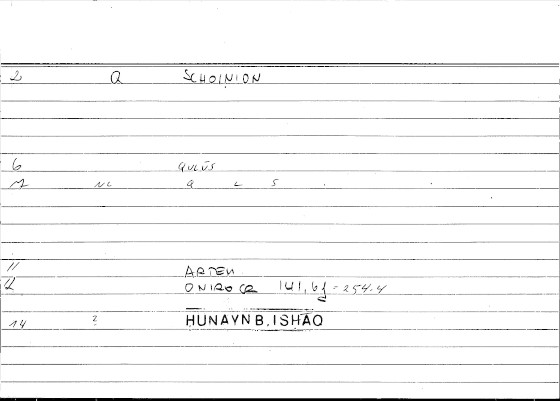 2 Q SCHOINION
6 QULŪS
M NL Q L S
11 ARTEM
12 ONIROCR 141,6f = 254.4
14 ? HUNAYN B. ISHAQ